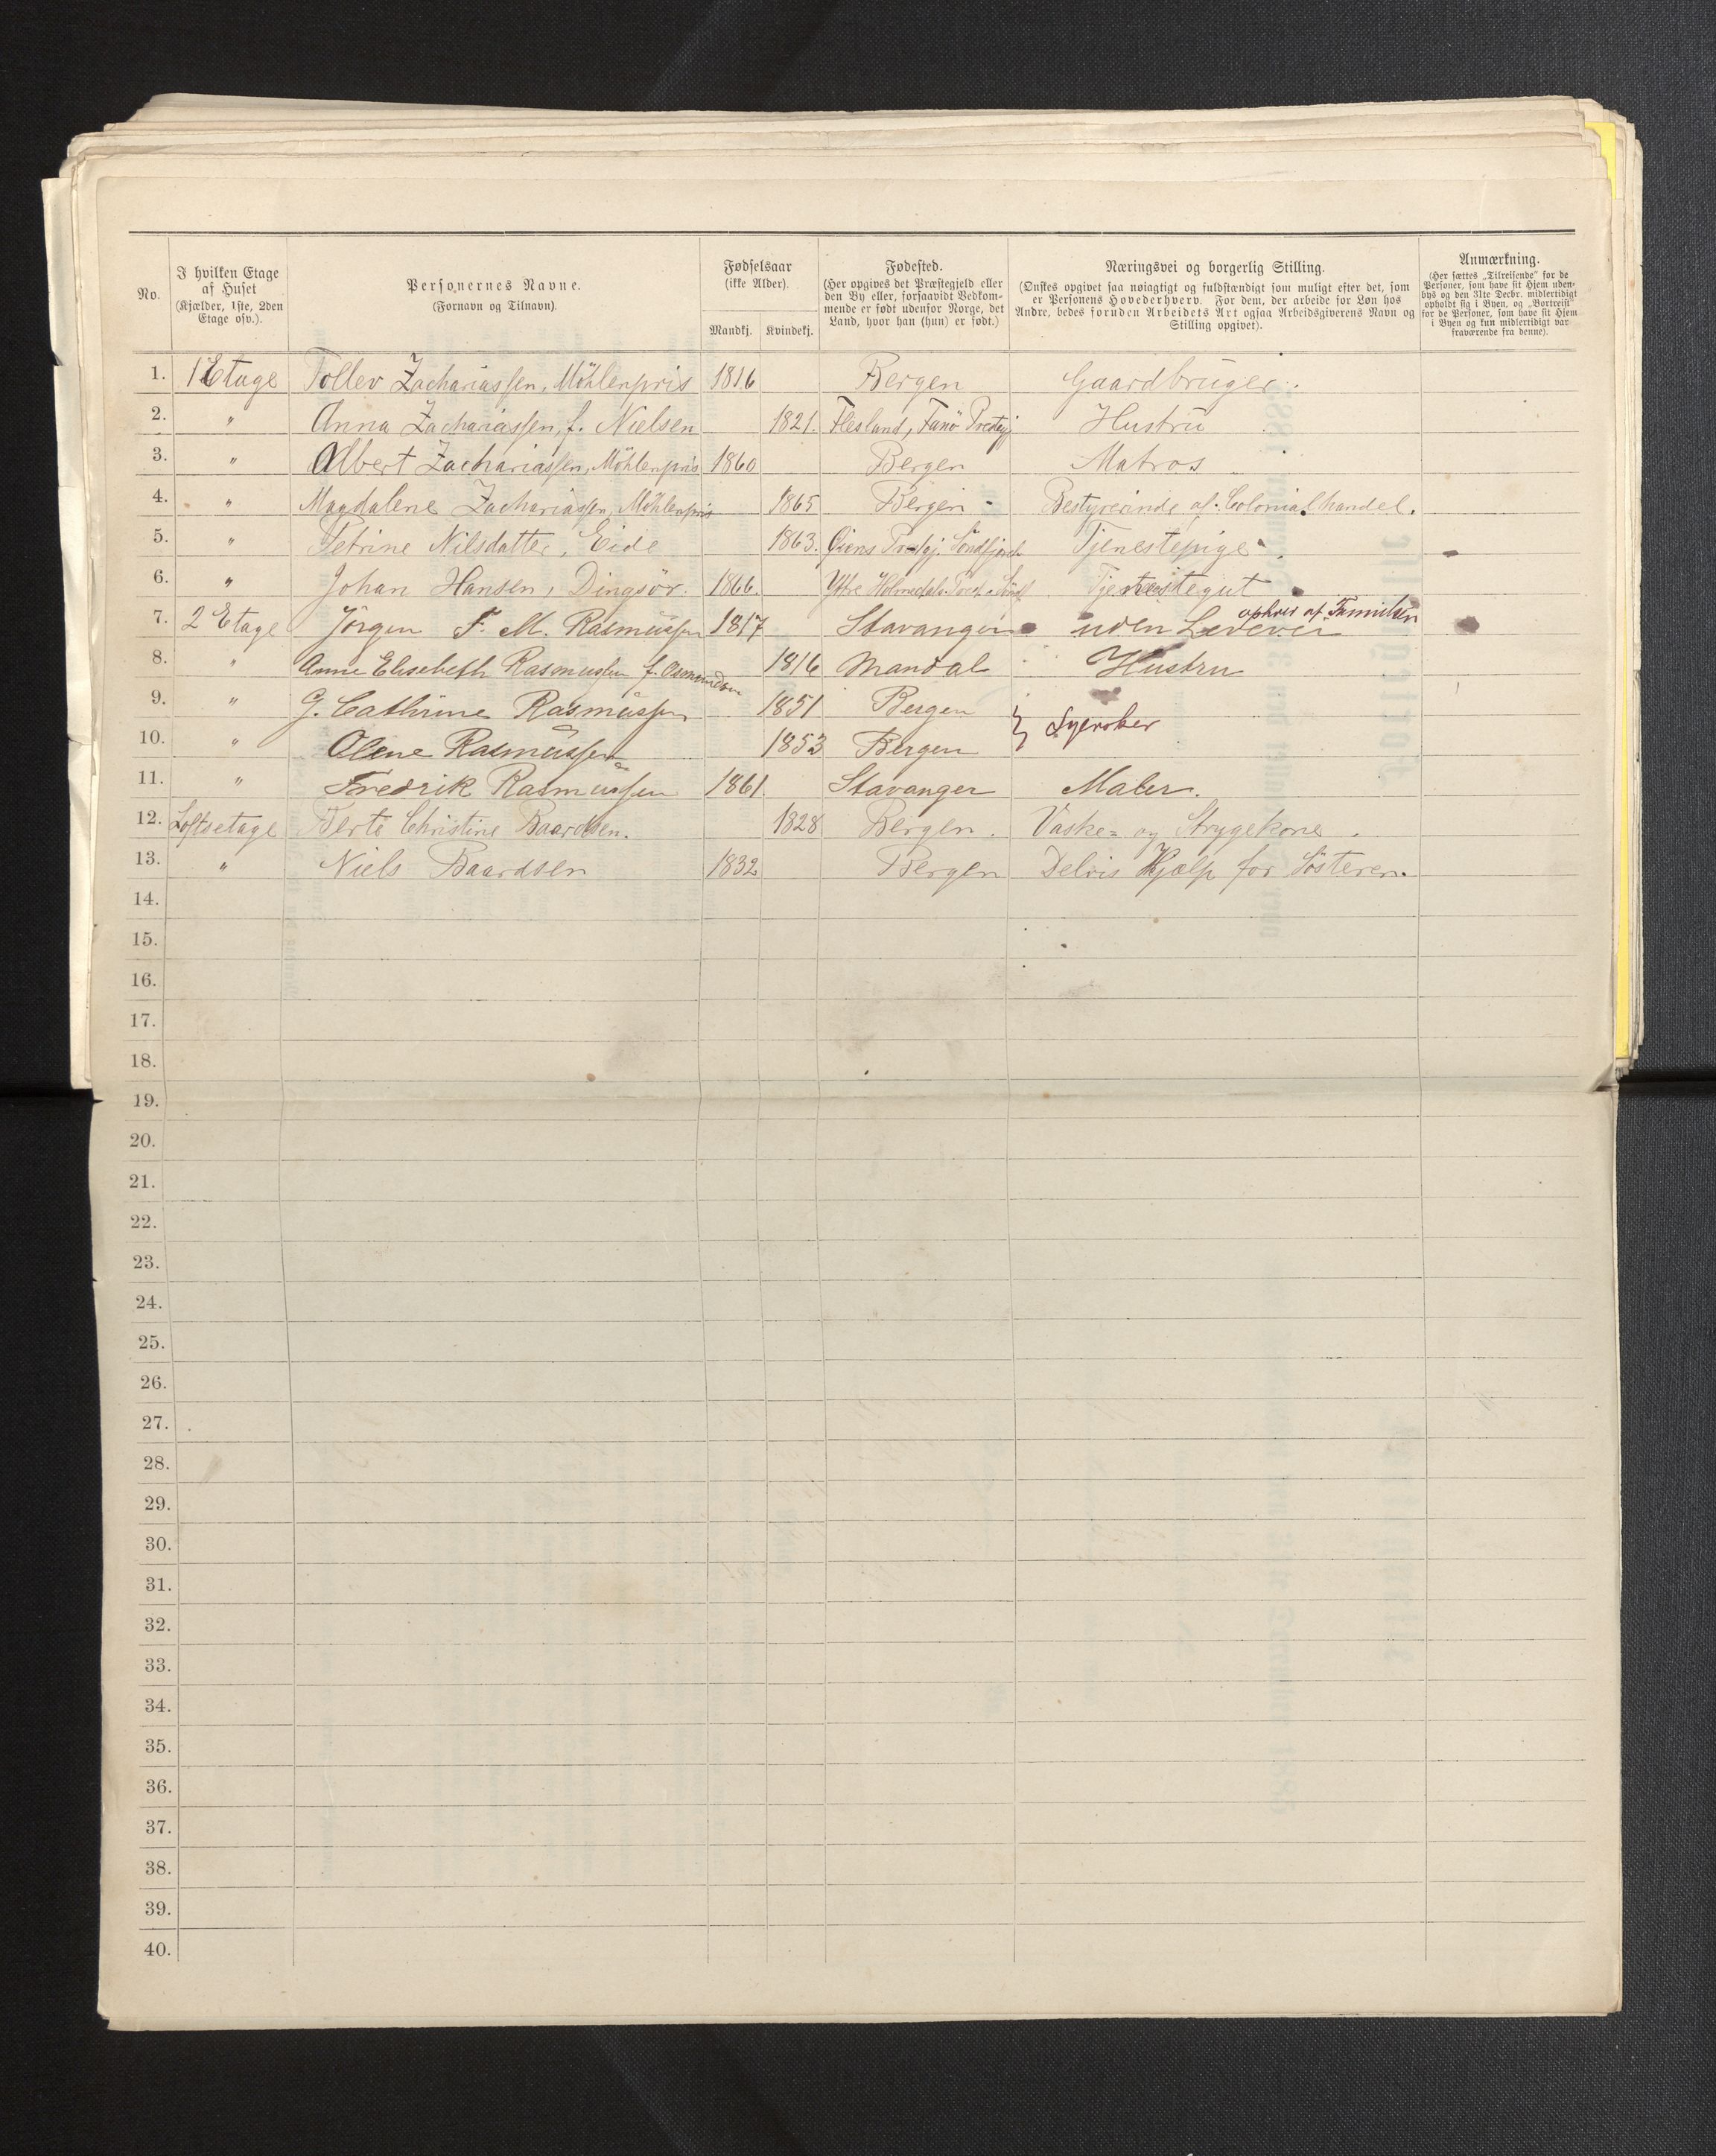 No.
I hvilken Etage af Huset (Kjælder, 1ste, 2den Etage osv.).
Personernes Navne. (Fornavn og Tilnavn).
Fødselsaar (ikke Alder). Mandkj. Kvindekj.
Fødested. (Her opgives det Præstegjeld eller den By eller, forsaavidt Vedkommende er født udenfor Norge, det Land, hvor han (hun) er født.)
Næringsvei og borgerlig Stilling. (Ønskes opgivet saa nøiagtigt og fuldstændigt som muligt efter det, som er Personens Hovederhverv. For dem, der arbeide for Løn hos Andre, bedes foruden Arbeidets Art ogsaa Arbeidsgiverens Navn og Stilling opgivet).
Anmærkning. (Her sættes „Tilreisende“ for de Personer, som have sit Hjem udenbys og den 31te Decbr. midlertidigt opholdt sig i Byen, og „Bortreist“ for de Personer, som have sit Hjem i Byen og kun midlertidigt var fraværende fra denne).
1. 1 Etage Tollev Zachariassen, Möhlenpris 1816 Bergen Gaardbruger.
2. " Anna Zachariassen, f. Nielsen 1821. Flesland, Fanö Prestgj Hustru
3. " Albert Zachariassen, Möhlenpris 1860 Bergen Matros
4. " Magdalene Zachariassen, Möhlenpris 1865 Bergen Bestyrerinde af Colonialhandel.
5. " Petrine Nilsdatter, Eide 1863. Söndfjord Tjenestepige
6. " Johan Hansen, Dingsör. 1866. Ytre Holmedals Tjenestegut
7. 2 Etage Jörgen F. M. Rasmussen 1817 Stavanger uden af Familien
8. " Anne Elisebeth Rasmussen f. Osmundsen 1816 Mandal Hustru
9. " G. Cathrine Rasmussen 1851 Bergen } Syersker
10. " Olene Rasmussen 1853 Bergen
11. " Fredrik Rasmussen 1861. Stavanger Maler.
12. Loftsetage Berte Christine Baardsen. 1828 Bergen. Vaske- og Strygekone.
13. " Niels Baardsen 1832 Bergen Delvis Hjælp for Søsteren.
14.
15.
16.
17.
18.
19.
20.
21.
22.
23.
24.
25.
26.
27.
28.
29.
30.
31.
32.
33.
34.
35.
36.
37.
38.
39.
40.